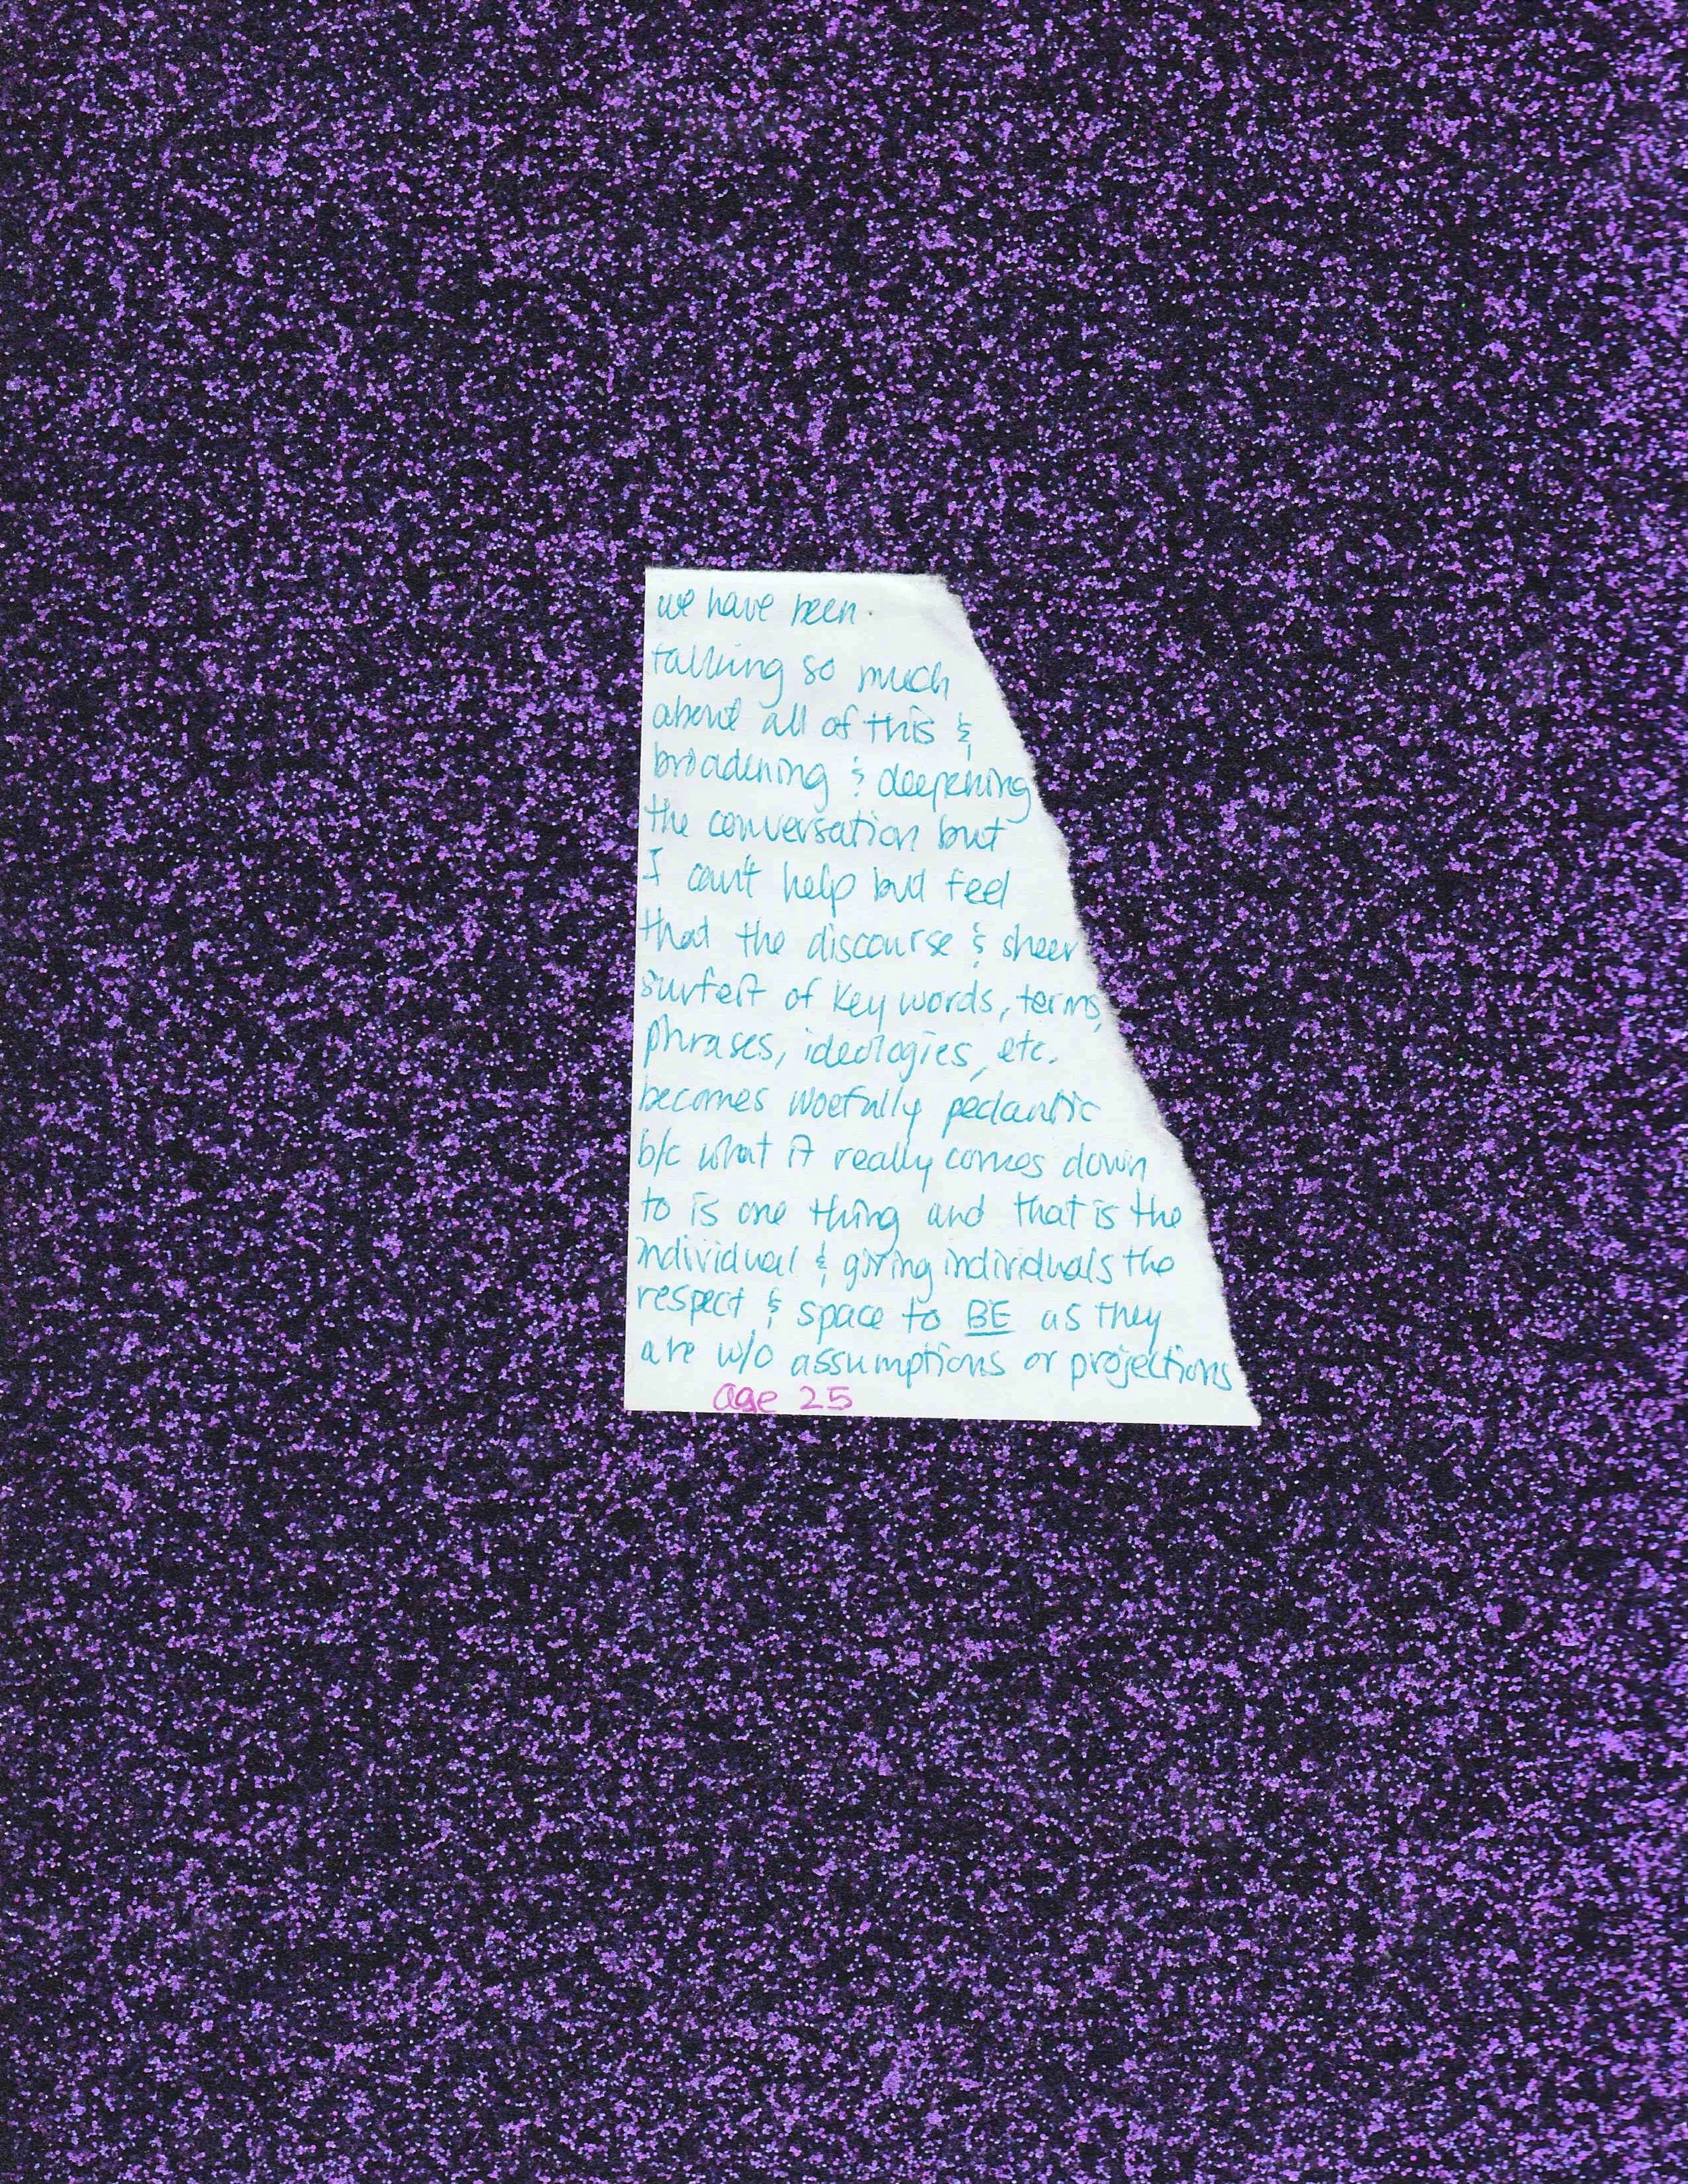 we have been
talking so much
about all of this &
broadening & deepening
the conversation but
I can't help but feel
that the discourse & sheer
surfeit of key words, terms,
phrases, ideologies, etc.
becomes woefully pedantic
b/c what it really comes down
to is one thing and that is the
individual & giving individuals the
respect & space to BE as they
are w/o assumptions or projections
age 25